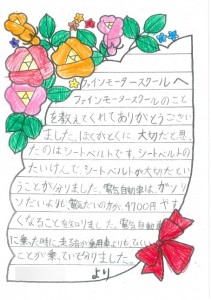 ファインモータースクールへ
ファインモータースクールのこと
を教えてくれてありがとうござい
ました。ぼくがとくに、大切だと思っ
たのはシートベルトです。シートベルトの
たいけんで、シートベルトが大切だとい
うことが分りました。電気自動車は、ガソリ
ンだいよりも、電気だいの方が、4700円やす
くなることを知りました。電気自動車
に乗った時に、走る音が乗用車よりも、ない
ことが乗っていて分りました。
より